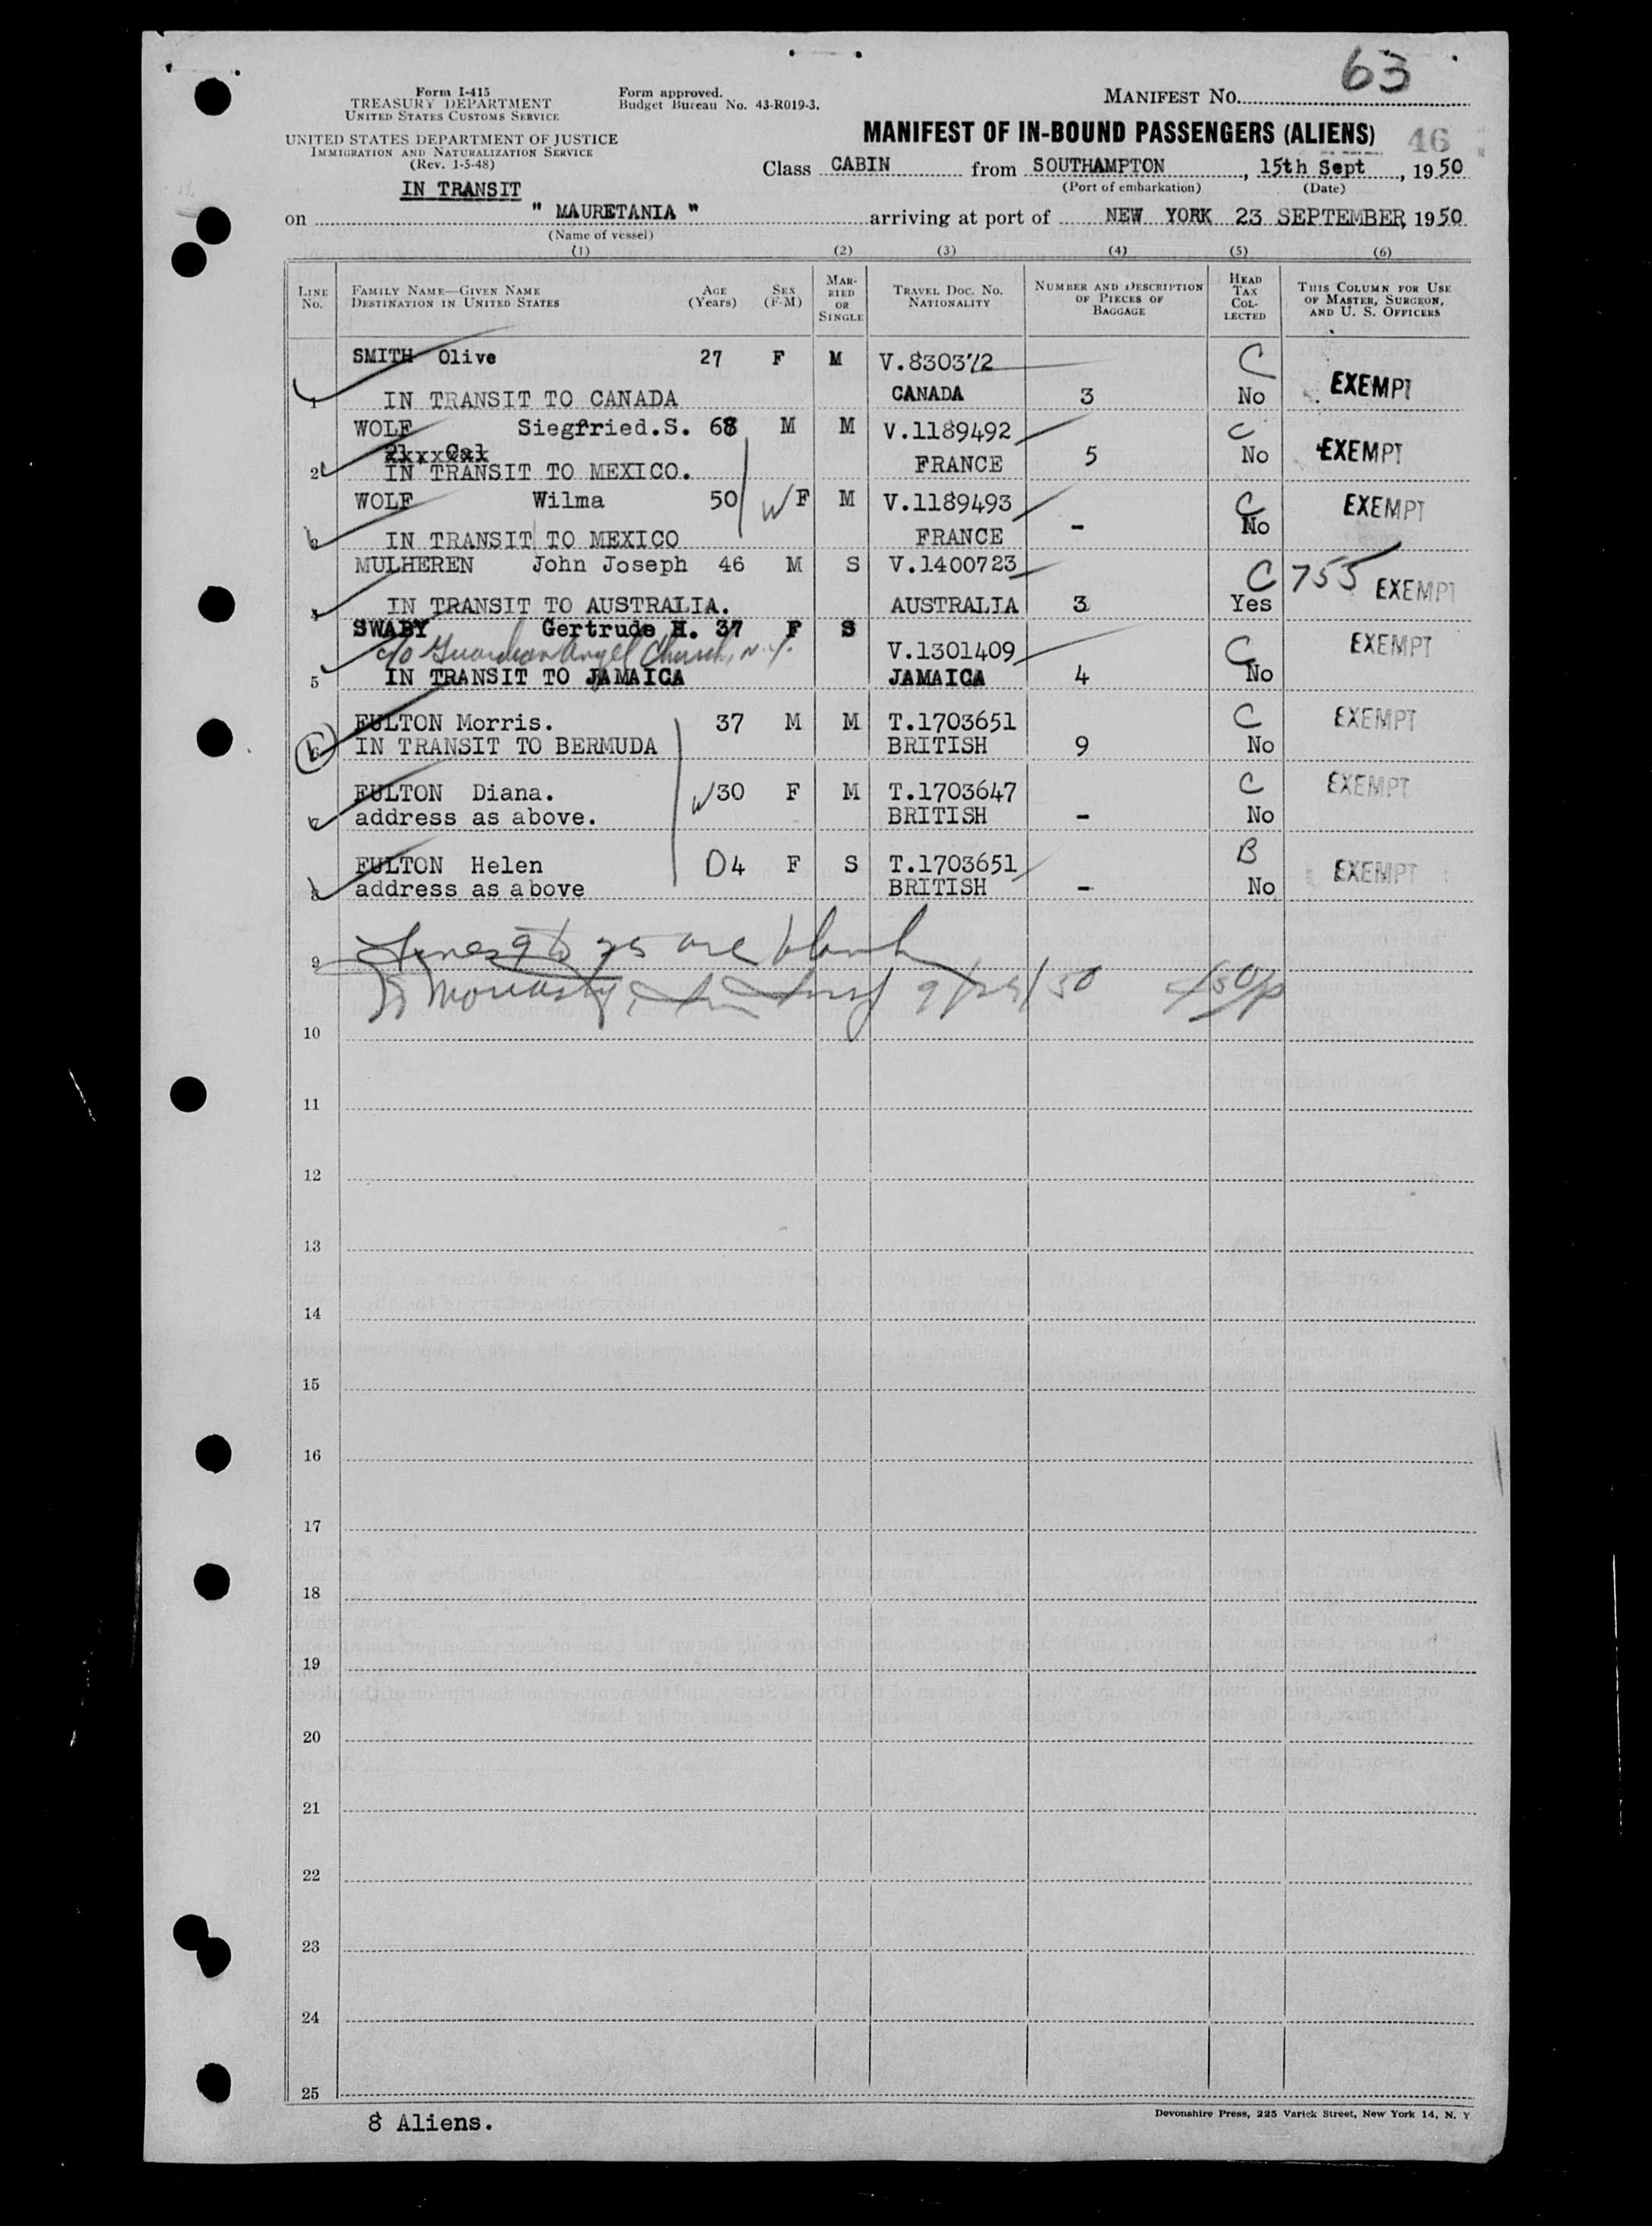 63
Form I-415
TREASURY DEPARTMENT
UNITED STATES CUSTOMS SERVICE
Form approved.
Budget Bureau No. 43-R019-3.
MANIFEST NO.
UNITED STATES DEPARTMENT OF JUSTICE
IMMIGRATION AND NATURALIZATION SERVICE
(Rev. 1-5-48)
MANIFEST OF IN-BOUND PASSENGERS (ALIENS) 46
IN TRANSIT
Class CABIN from SOUTHAMPTON, 15th Sept, 1950
(Port of embarkation) (Date)
on " MAURETANIA " arriving at port of NEW YORK 23 SEPTEMBER, 1950
(Name of vessel)
(1) (2) (3) (4) (5) (6)
LINE NO. FAMILY NAME—GIVEN NAME DESTINATION IN UNITED STATES AGE (Years) SEX (F-M) MARRIED OR SINGLE TRAVEL DOC. NO. NATIONALITY NUMBER AND DESCRIPTION OF PIECES OF BAGGAGE HEAD TAX COLLECTED THIS COLUMN FOR USE OF MASTER, SURGEON, AND U. S. OFFICERS
SMITH Olive 27 F M V.830372 C
1 IN TRANSIT TO CANADA CANADA 3 No EXEMPT
WOLF Siegfried.S. 68 M M V.1189492 C
2 IN TRANSIT TO MEXICO. FRANCE 5 No EXEMPT
WOLF Wilma 50 W F M V.1189493 C EXEMPT
3 IN TRANSIT TO MEXICO FRANCE - No
MULHEREN John Joseph 46 M S V.1400723 C 755 EXEMPT
4 IN TRANSIT TO AUSTRALIA. AUSTRALIA 3 Yes
SWABY Gertrude H. 37 F S
c/o Guardian Angel Church, N.Y. V.1301409 C EXEMPT
5 IN TRANSIT TO JAMAICA JAMAICA 4 No
FULTON Morris. 37 M M T.1703651 C EXEMPT
6 IN TRANSIT TO BERMUDA BRITISH 9 No
FULTON Diana. W 30 F M T.1703647 C EXEMPT
7 address as above. BRITISH - No
FULTON Helen D 4 F S T.1703651 B EXEMPT
8 address as above BRITISH - No
Lines 9 to 25 are blank
9
10
11
12
13
14
15
16
17
18
19
20
21
22
23
24
25
8 Aliens.
Devonshire Press, 225 Varick Street, New York 14, N. Y